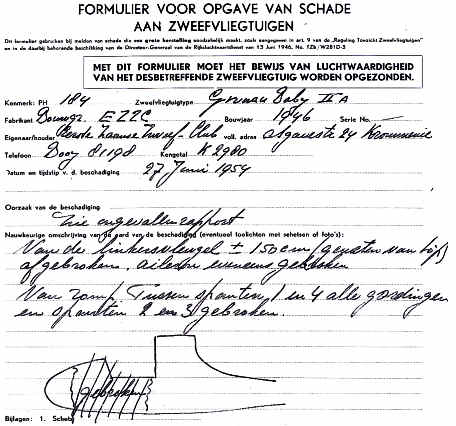 FORMULIER VOOR OPGAVE VAN SCHADE
AAN ZWEEFVLIEGTUIGEN
Dit formulier gebruiken bij melden van schade die een grote herstelling noodzakelijk maakt, zoals aangegeven in art. 9 van de „Regeling Toezicht Zweefvliegtuigen"
en in de daarbij behorende beschikking van de Directeur-Generaal van de Rijksluchtvaartdienst van 13 Juni 1946, No. LZb/W2810-3
MET DIT FORMULIER MOET HET BEWIJS VAN LUCHTWAARDIGHEID
VAN HET DESBETREFFENDE ZWEEFVLIEGTUIG WORDEN OPGEZONDEN.
Kenmerk: PH 184 Zweefvliegtuigtype Grunau Baby II A
Fabrikant EZZC Bouwjaar 1946 Serie No. —
Eigenaar/houder Eerste Zaanse Zweef-Club voll. adres 24 Krommenie
Telefoon 81198 Kengetal K 2980
Datum en tijdstip v. d. beschadiging 27 Juni 1954
Oorzaak van de beschadiging
zie ongevallenrapport
Nauwkeurige omschrijving van de aard van de beschadiging (eventueel toelichten met schetsen of foto's):
Van de linkervleugel ± 150 cm (gemeten van tip)
afgebroken. aileron eveneens gebroken
Van romp. Tussen spanten, 1 en 4 alle gordingen
en spanten 2 en 3 gebroken.
gebroken
Bijlagen: 1.